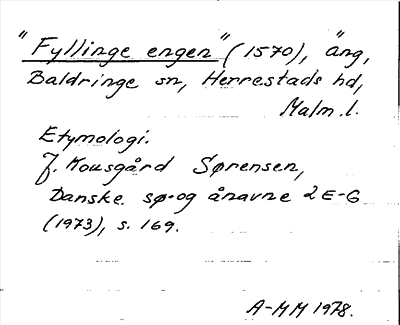 "Fyllinge engen" (1570), äng,
Baldringe sn, Herrestads hd,
Malm. l.
Etymologi.
J. Kousgård Sørensen,
Danske sø- og ånavne 2 E-G
(1973), s. 169.
A-MM 1978.